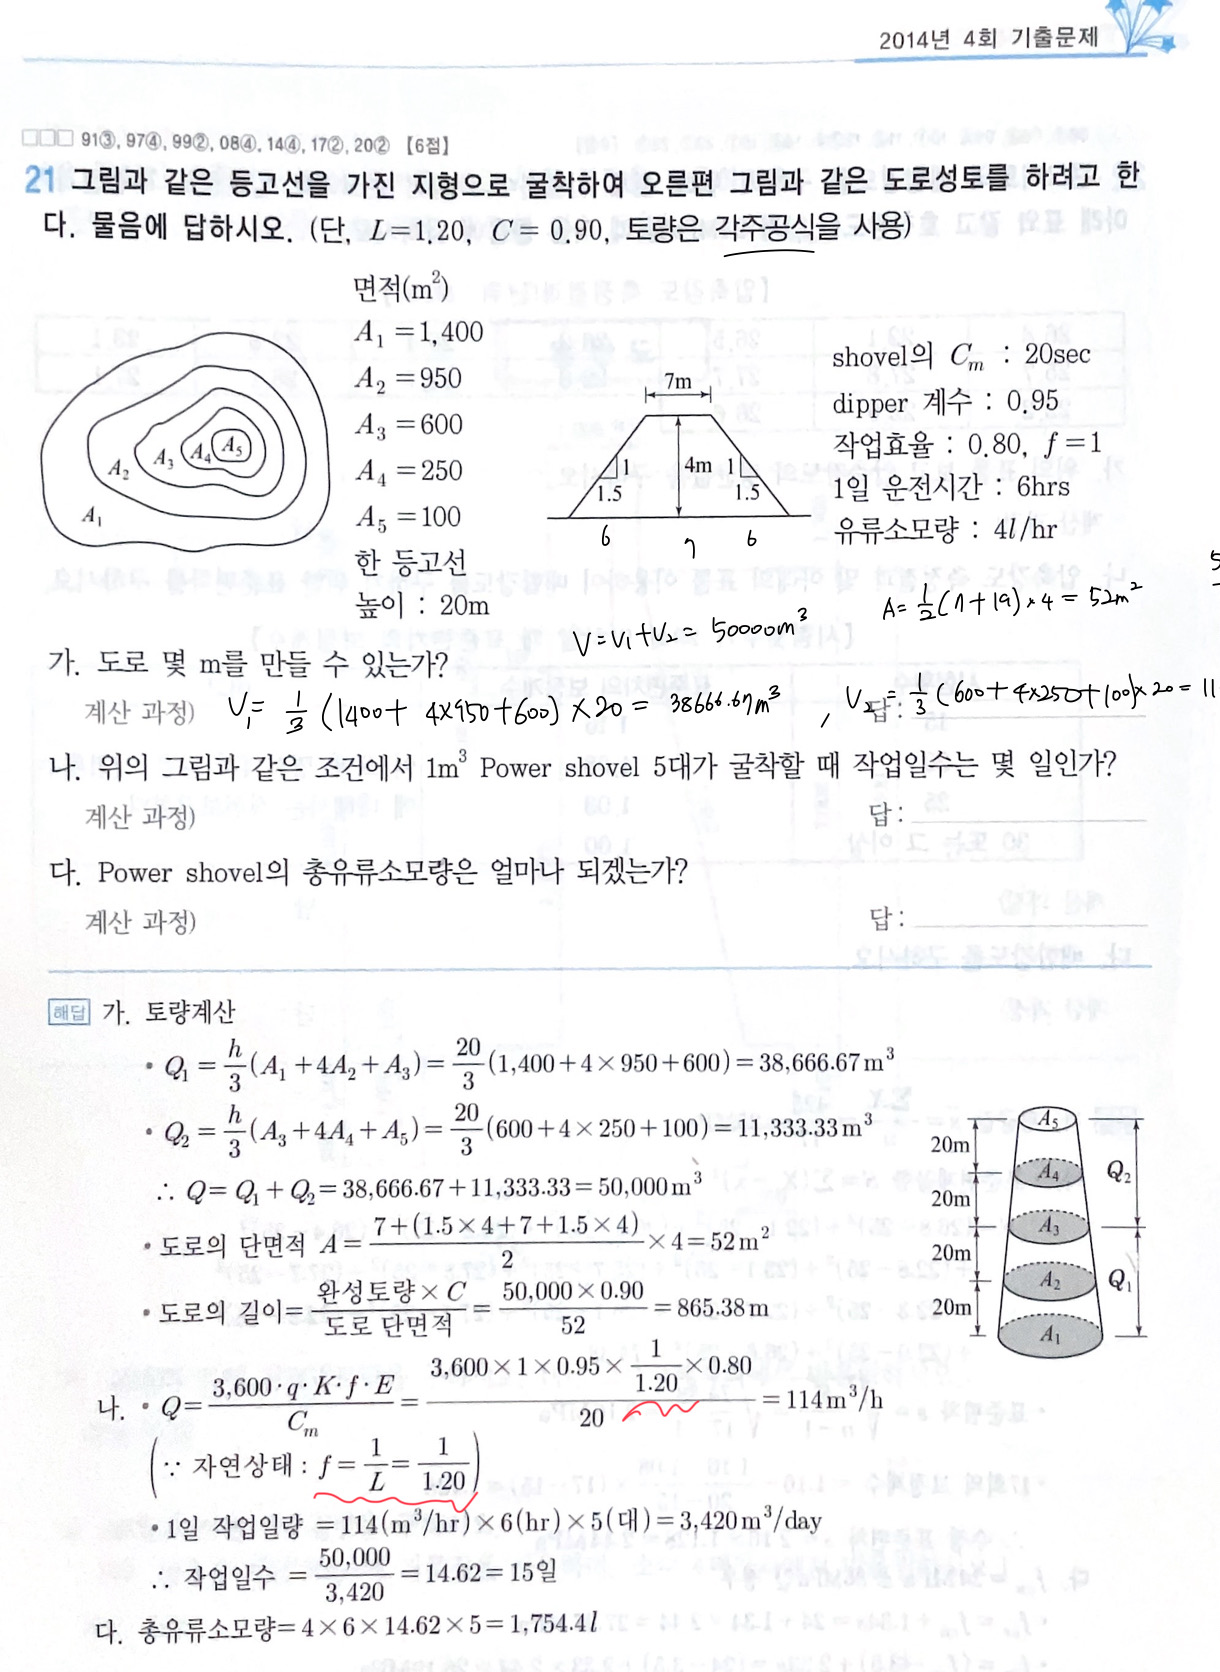 2014년 4회 기출문제
□□□ 91③, 97④, 99②, 08④, 14④, 17②, 20② 【6점】
21 그림과 같은 등고선을 가진 지형으로 굴착하여 오른편 그림과 같은 도로성토를 하려고 한
다. 물음에 답하시오. (단, L=1.20, C=0.90, 토량은 각주공식을 사용)
면적(m²)
A₁ =1,400
A₂ =950
A₃ =600
A₄ =250
A₅ =100
한 등고선
높이 : 20m
A₁ A₂ A₃ A₄ A₅
7m
4m
1 1
1.5 1.5
6 7 6
shovel의 Cₘ : 20sec
dipper 계수 : 0.95
작업효율 : 0.80, f=1
1일 운전시간 : 6hrs
유류소모량 : 4l/hr
A= 1/2 (7+19)×4 = 52m²
V=V₁+V₂= 50000m³
가. 도로 몇 m를 만들 수 있는가?
계산 과정) V₁= 1/3 (1400+ 4×950+600) ×20 = 38666.67m³ , V₂= 1/3 (600+4×250+100)×20 = 11
답 :
나. 위의 그림과 같은 조건에서 1m³ Power shovel 5대가 굴착할 때 작업일수는 몇 일인가?
계산 과정) 답 :
다. Power shovel의 총유류소모량은 얼마나 되겠는가?
계산 과정) 답 :
해답 가. 토량계산
• Q₁ = h/3 (A₁+4A₂+A₃) = 20/3 (1,400+4×950+600) = 38,666.67m³
• Q₂ = h/3 (A₃+4A₄+A₅) = 20/3 (600+4×250+100) = 11,333.33m³
∴ Q= Q₁+Q₂=38,666.67+11,333.33=50,000m³
• 도로의 단면적 A= 7+(1.5×4+7+1.5×4)/2 ×4=52m²
• 도로의 길이= 완성토량×C/도로 단면적 = 50,000×0.90/52 =865.38m
A₅
20m A₄ Q₂
20m A₃
20m A₂ Q₁
20m A₁
나. • Q= 3,600·q·K·f·E/Cₘ = 3,600×1×0.95× 1/1.20 ×0.80/20 =114m³/h
(∵ 자연상태 : f= 1/L = 1/1.20)
• 1일 작업일량 =114(m³/hr)×6(hr)×5(대)=3,420m³/day
∴ 작업일수 = 50,000/3,420 =14.62=15일
다. 총유류소모량=4×6×14.62×5=1,754.4l